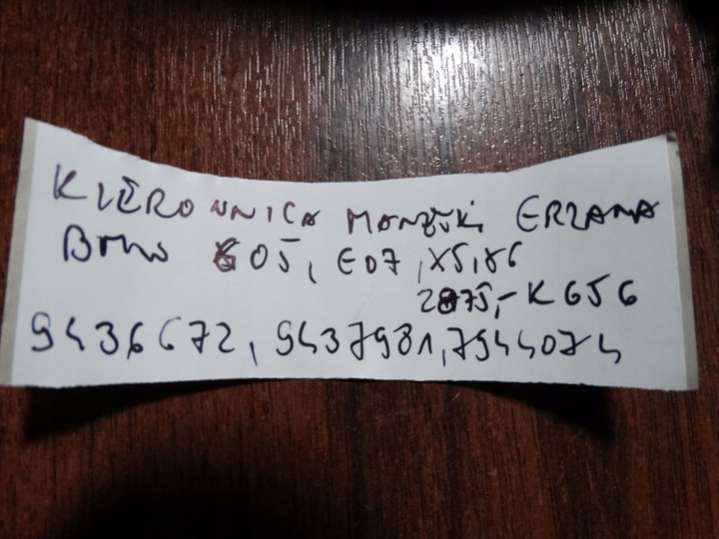 KIEROWNICA MANETKI GRZANA
BMW G05, G07, X5, X6
2875,- K656
9436672, 9437981, 7944074